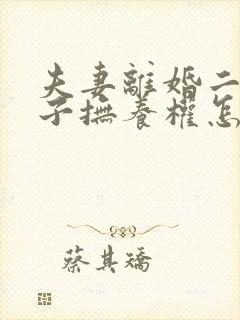 夫妻離婚二
子撫養權怎
蔡其矯